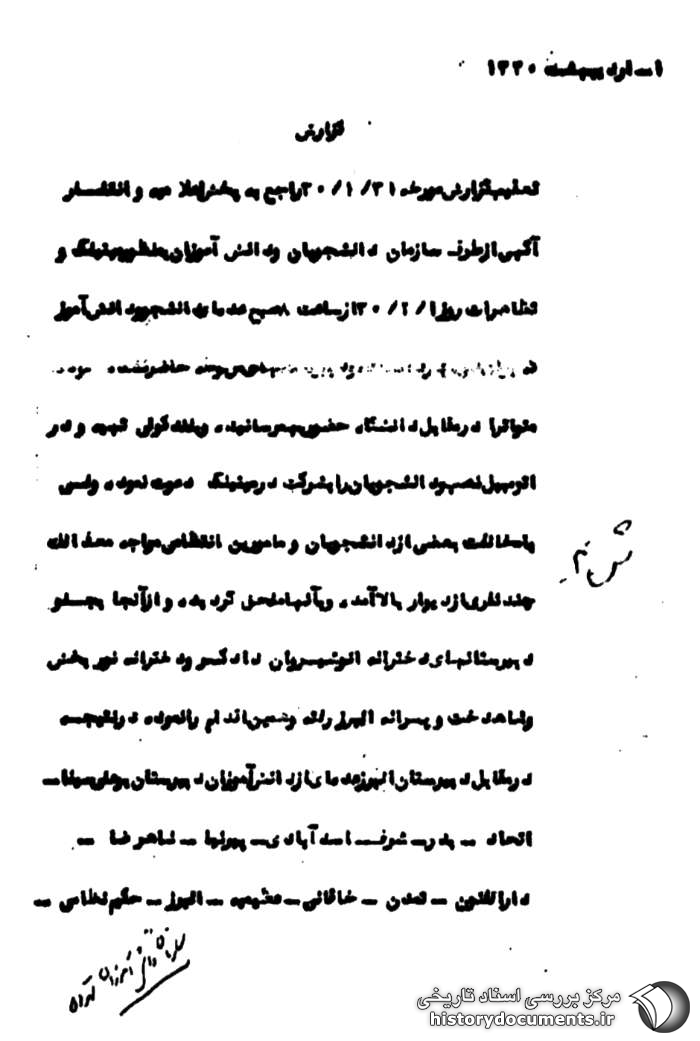 ۱ـ اردیبهشت ۱۳۳۰
گزارش
تعقیب گزارش مورخه ۳۰/۱/۳۱ راجع به پخش اعلامیه و انتشار
آگهی از طرف سازمان دانشجویان ودانش آموزان بمنظور میتینگ و
تظاهرات روز ۳۰/۲/۱ از ساعت ۸ صبح عده‌ای دانشجو و دانش آموز
در حاضر شده
متواترا در مقابل دانشگاه حضور بهم رسانیده و بلندگوئی تهیه و در
اتومبیل نصب و دانشجویان را بشرکت در میتینگ دعوت نموده ولی
با مخالفت بعضی از دانشجویان و مامورین انتظامی مواجه معذالک
چند نفری از دیوار بالا آمده و بآنها ملحق گردیده و از آنجا بجلو
دبیرستانهای دخترانه انوشیروان دادگسر و دخترانه نوربخش
وشاهدخت و پسرانه البرز رفته وهمین اقدام را نموده در نتیجه
در مقابل دبیرستان البرز عده‌ای از دانش آموزان دبیرستان بوعلی سینا ــ
اتحاد ــ بدر ــ شرف ــ اسدآبادی ــ پیرنیا ــ شاهرضا ــ
دارالفنون ــ تمدن ــ خاقانی ــ علمیه ــ البرز ــ حکیم نظامی ــ
سازمان دانش آموزان تهران
مرکز بررسی اسناد تاریخی
historydocuments.ir